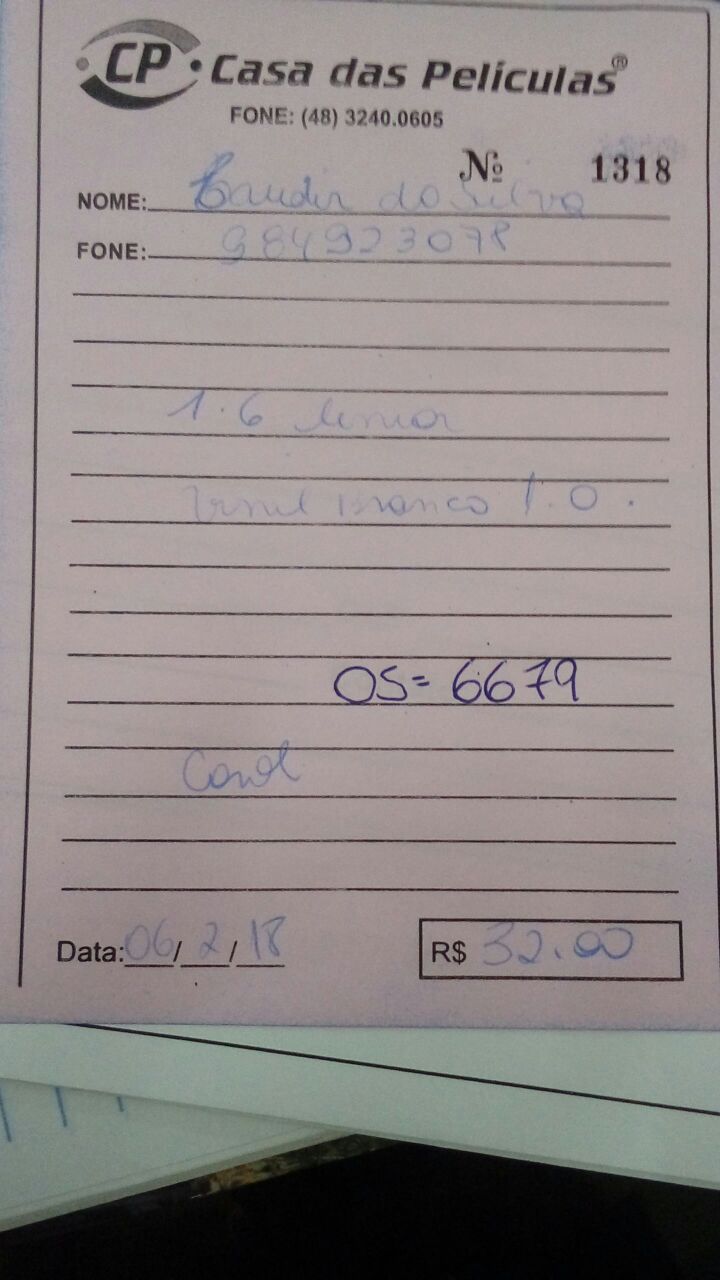 CP Casa das Películas®
FONE: (48) 3240.0605
Nº 1318
NOME: da Silva
FONE: 984923078
1.6
Branco 1.0.
OS= 6679
Data: 06/2/18
R$ 32.00